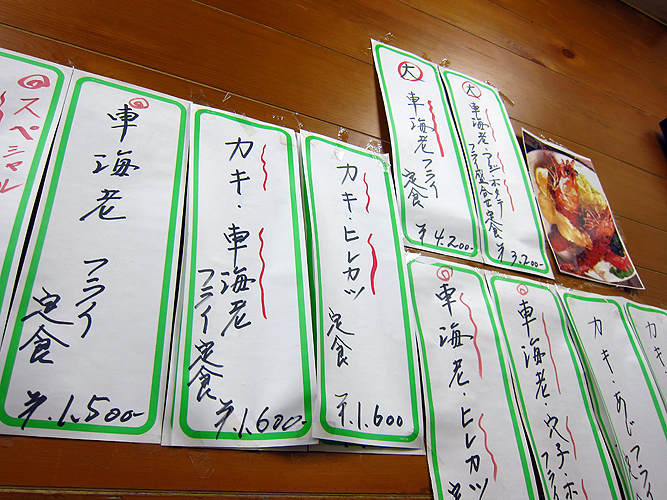 スペシャル
車海老
フライ
定食
¥.1,500-
カキ・車海老
フライ定食
¥.1,600-
カキ・ヒレカツ
定食
¥.1,600
大
車海老フライ
定食
¥4,200-
大
車海老・アジ・ホタテ
フライ盛合せ定食
¥3,200-
車海老・ヒレカツ
定
車海老・穴子・ホ
フライ
カキ・あじ
フライ
カキ